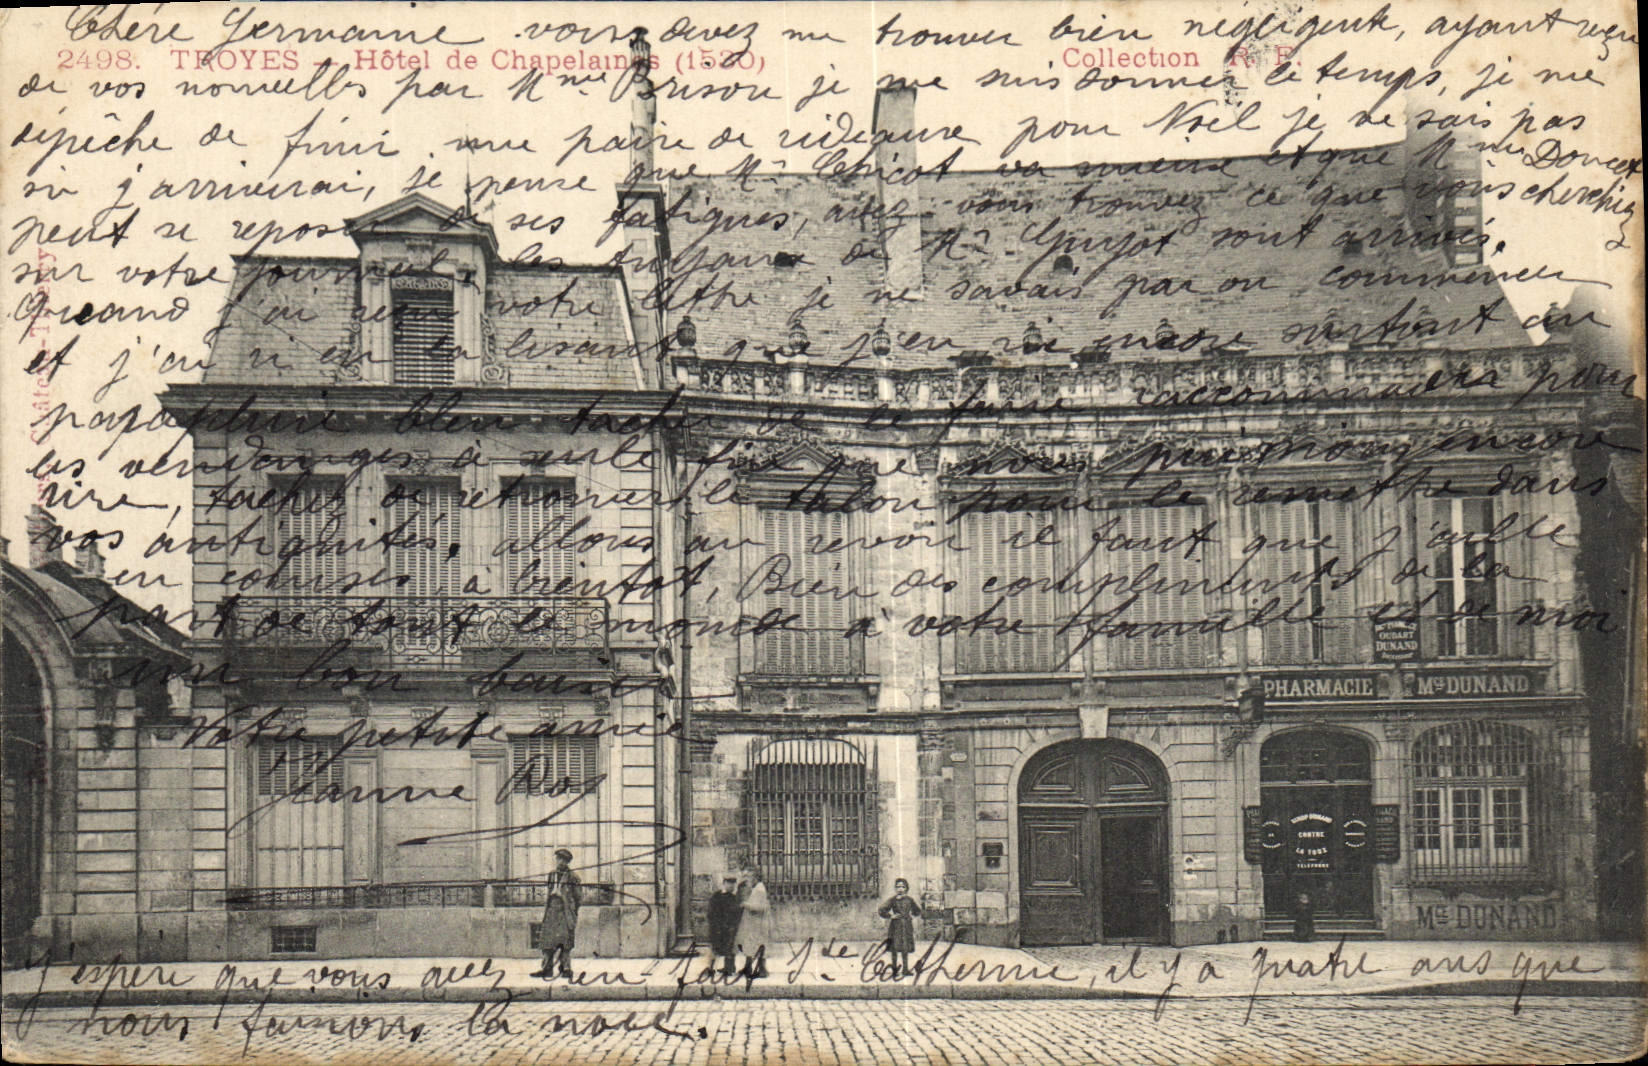 Chère Germaine vous devez me trouver bien négligente, ayant reçu
2498. TROYES - Hôtel de Chapelaines (1520)
Collection R. F.
de vos nouvelles par Mme Brison je me suis donner le temps, je me
dépêche de finir une paire de rideaux pour Noël je ne sais pas
si j'arriverai, je pense que Mr Chicot va mieux et que Mme Doucet
peut se reposer de ses fatigues, avez vous trouvez ce que vous cherchiez
sur votre journal, les tuyaux de Mr Guyot sont arrivés.
Quand j'ai reçu votre lettre je ne savais par ou commencer
et j'ai ri en la lisant que j'en ris encore surtout du
parapluie bleu tachez de le faire raccommoder pour
les vendanges à seule fin que nous puissions encore
rire, tachez de retrouver le talon pour le remettre dans
vos antiquités, allons au revoir il faut que j'aille
en courses, à bientôt, Bien des compliments de la
part de tout le monde à votre famille et de moi
un bon baiser
Votre petite amie
Jeanne
OUDART
DUNAND
PHARMACIE
Mce DUNAND
SIROP DUNAND
CONTRE
LA TOUX
TELEPHONE
Mce DUNAND
J'espère que vous avez bien fait Ste Catherine, il y a quatre ans que
nous faisions la noce.